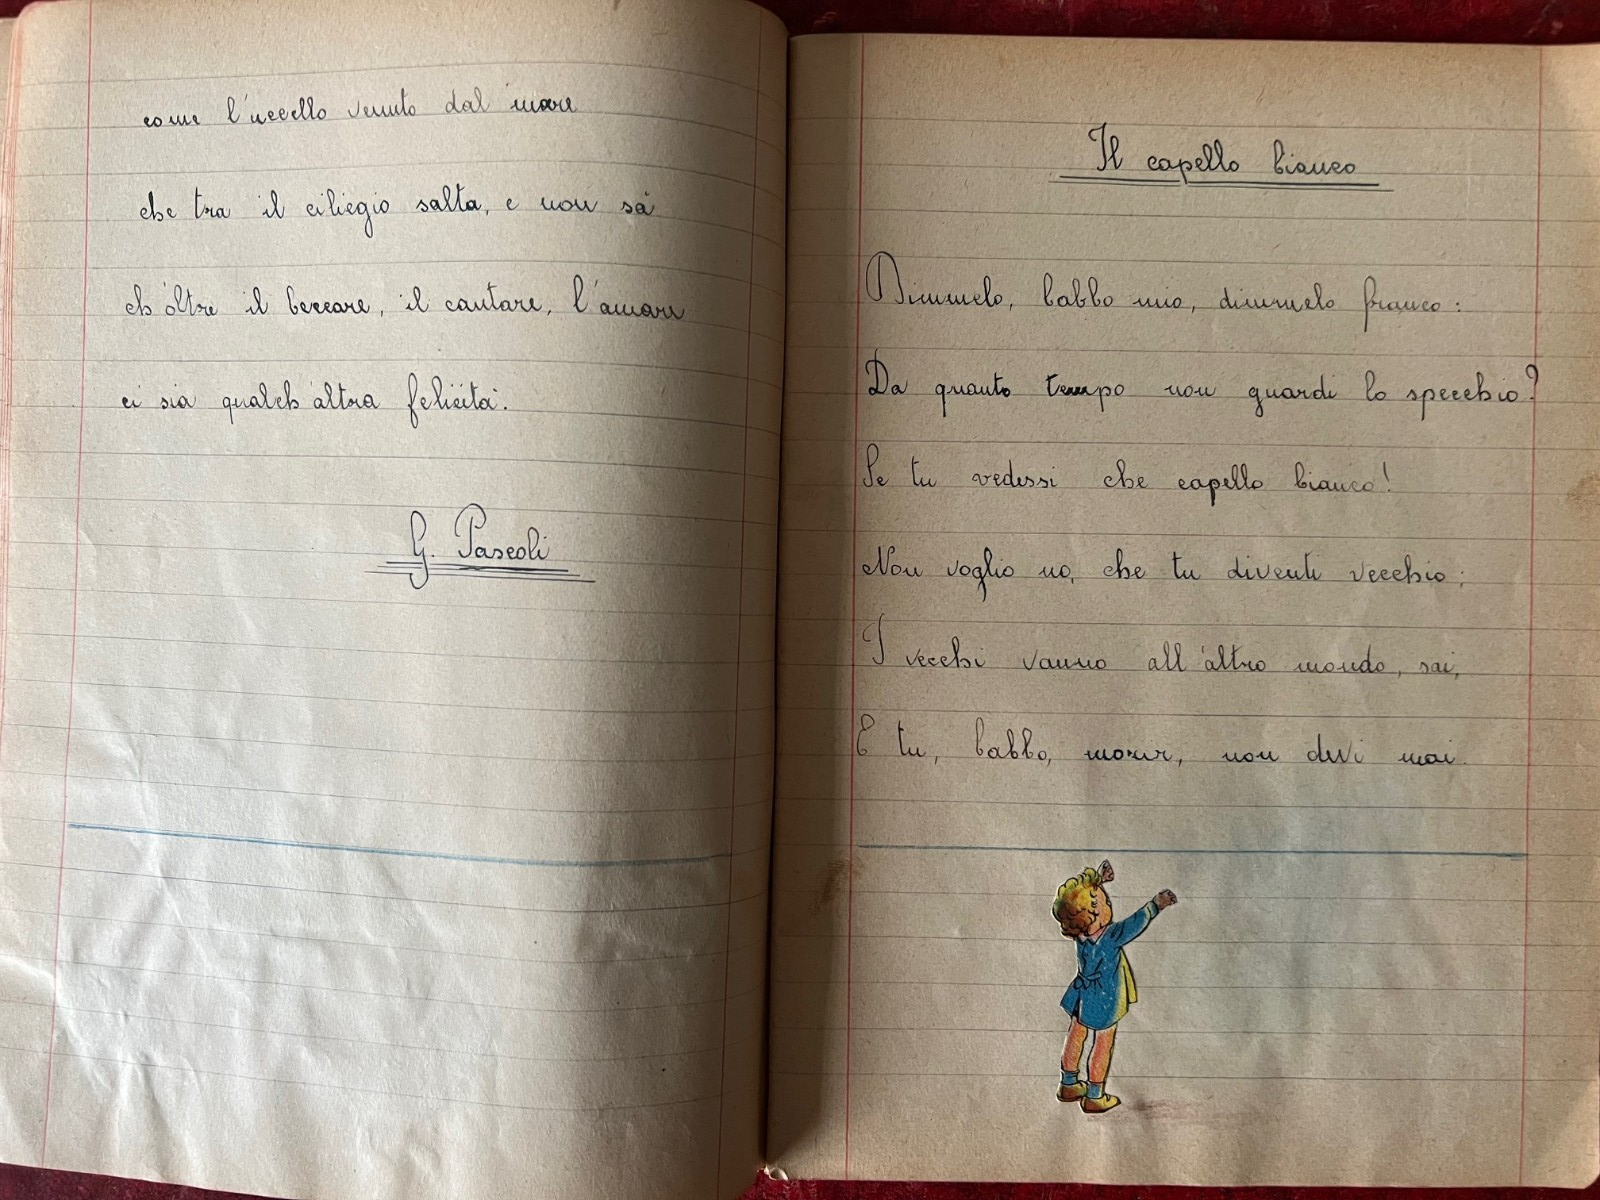 come l'uccello venuto dal mare
che tra il ciliegio salta, e non sà
ch'oltre il beccare, il cantare, l'amore
ci sia qualch'altra felicità.
G. Pascoli
Il capello bianco
Dimmelo, babbo mio, dimmelo franco:
Da quanto tempo non guardi lo specchio?
Se tu vedessi che capello bianco!
Non voglio no, che tu diventi vecchio;
I vecchi vanno all'altro mondo, sai,
E tu, babbo, morir, non devi mai.